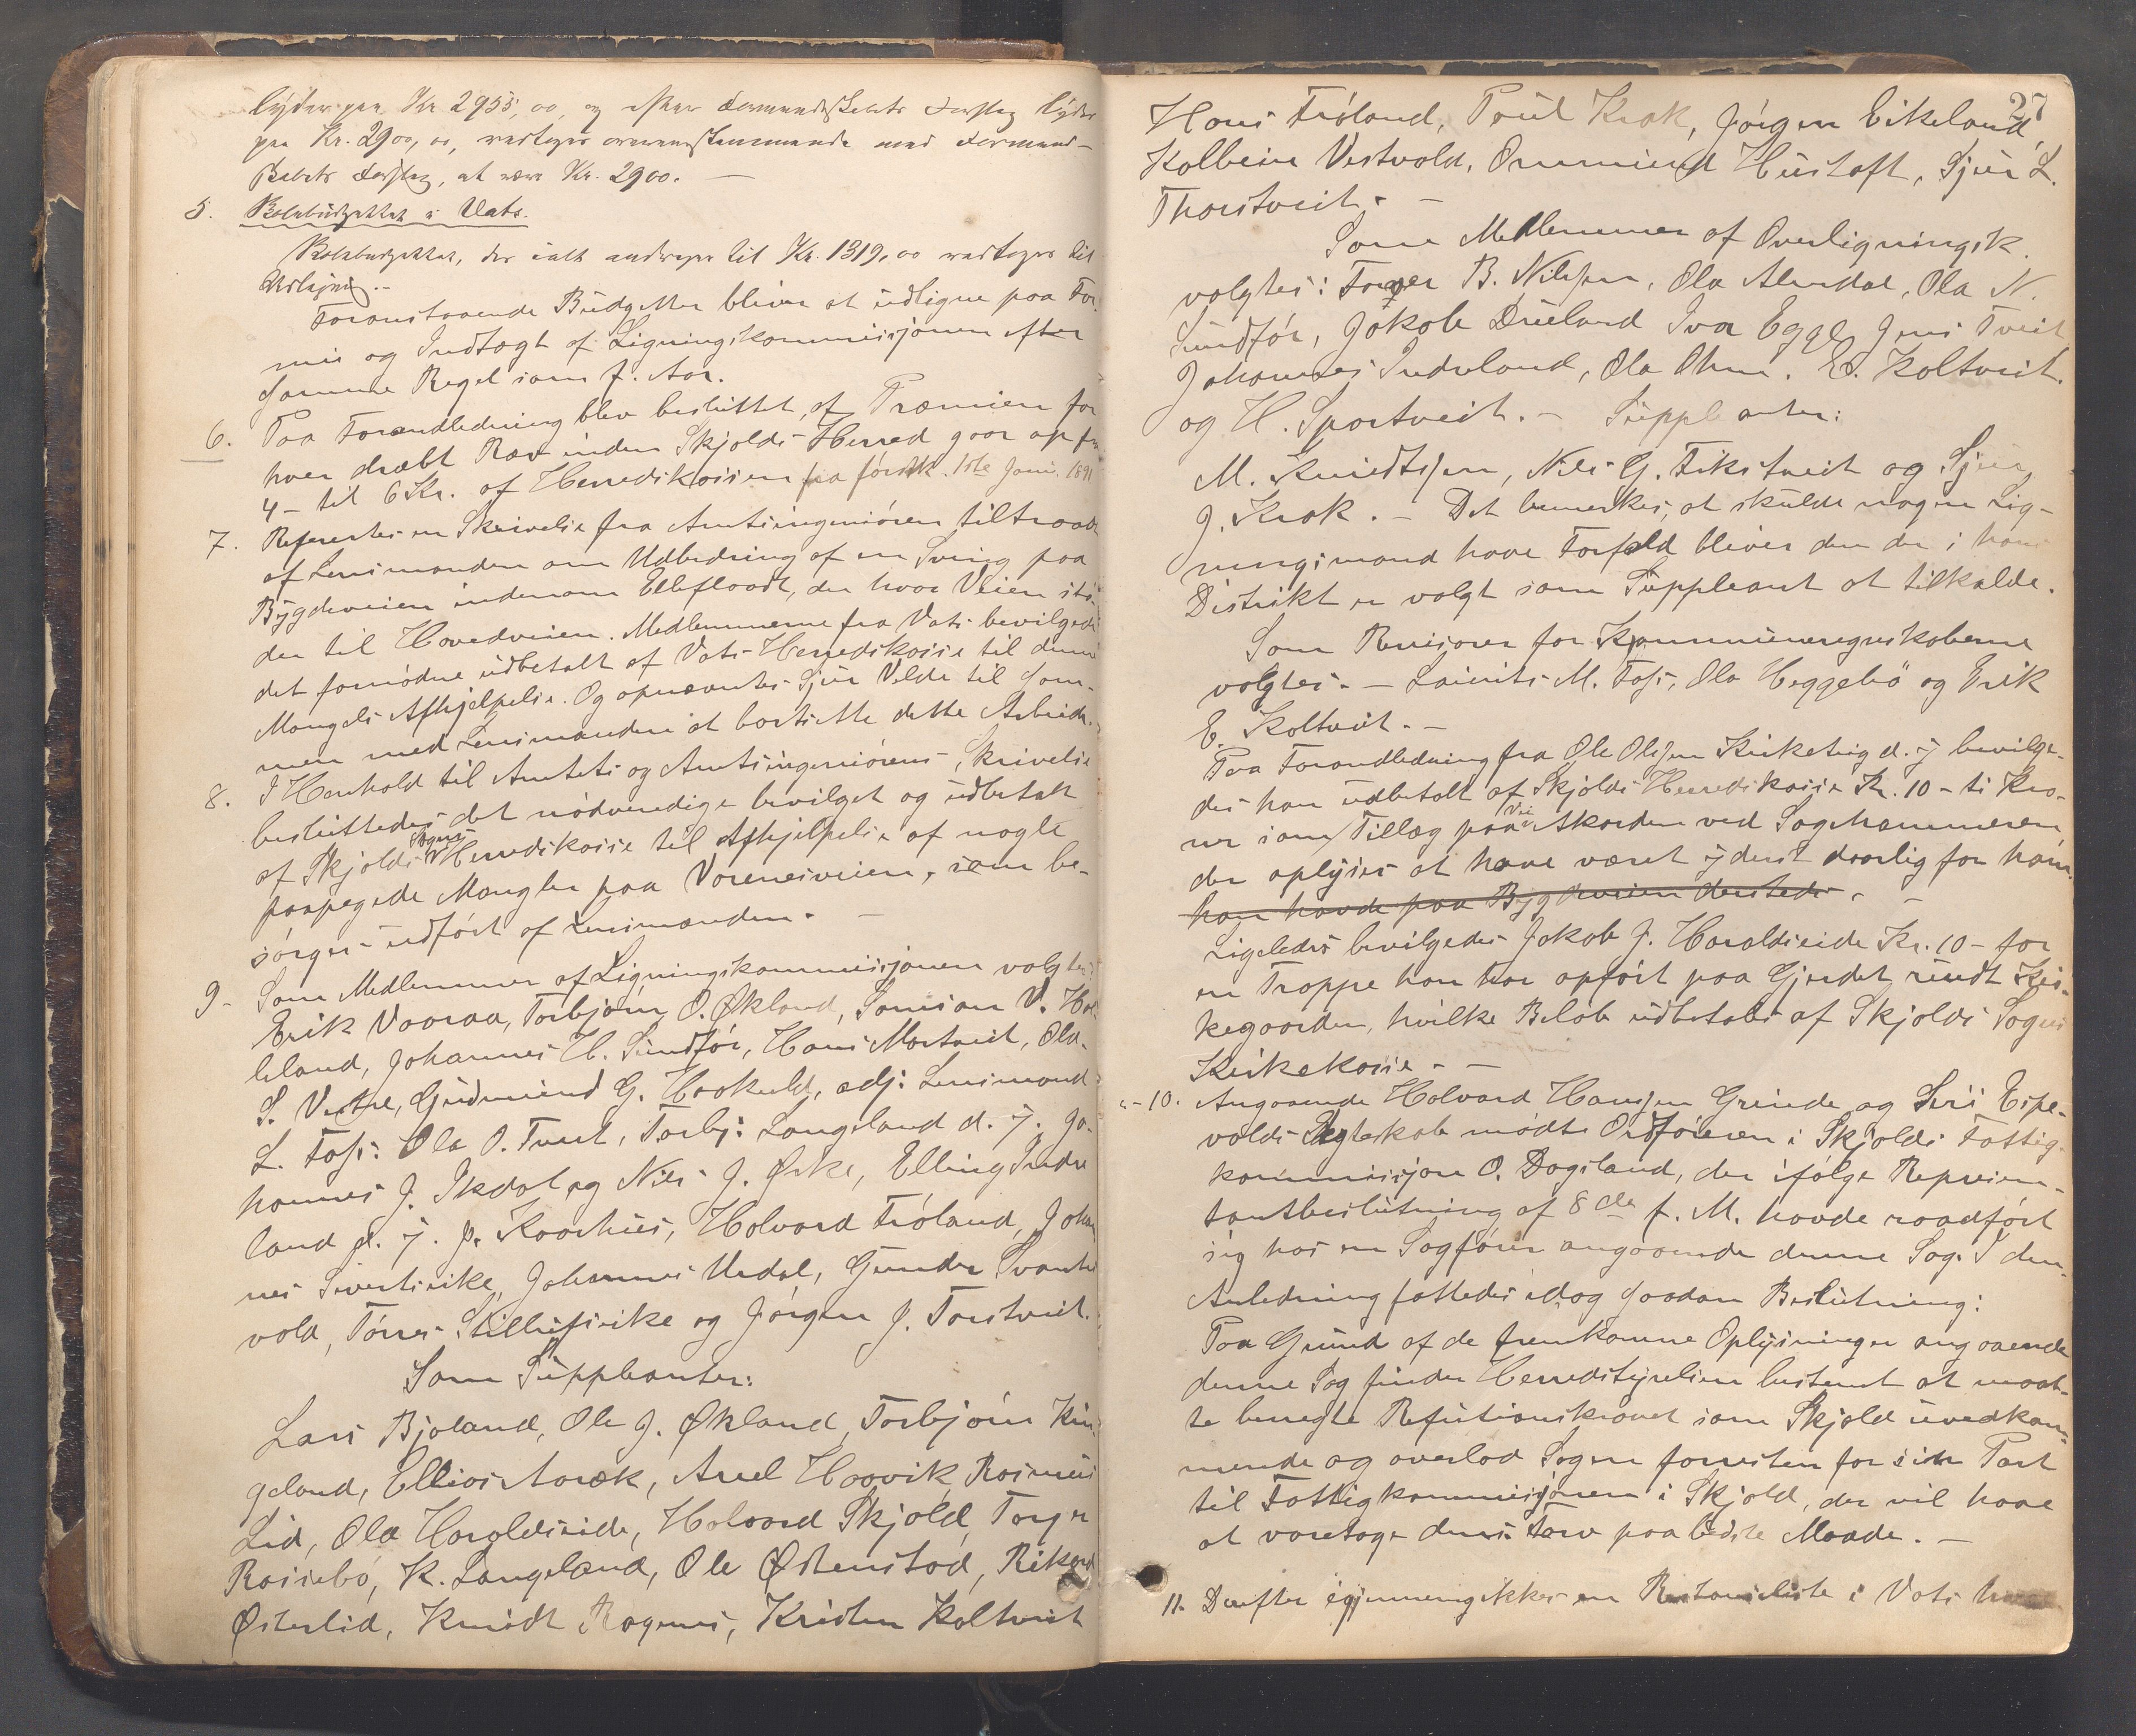 lyder paa Kr 2955,00, og efter Formandskabets Forslag lyder
paa Kr. 2900,00, vedtages overensstemmende med Formand-
skabets Forslag, at være Kr. 2900. —
5. Skolebudgettet i Vats.
Skolebudgettet, der ialt andrager til Kr. 1319,00 vedtoges til
Udligning. -
Foranstaaende Budgetter bliver at udligne paa For-
mue og Indtægt af Ligningskommissjonen efter
samme Regel som f. Aar.
6. Paa Foranledning blev besluttet, at Præmien for
hver dræbt Ræv inden Skjolds-Herred gaar op fra
4 - til 6 Kr. af Herredskassen fra førstk. 1ste Janr. 1891
7. Refereertes en Skrivelse fra Amtsingeniøren tiltraadt
af Lensmanden om Udbedring af en Sving paa
Bygdeveien indenom Ellefloodt, der hvor Veien stø-
der til Hovedveien. Medlemmerne fra Vats bevilgede
det fornødne udbetalt af Vats-Herredskasse til denne
Mangels Afhjelpelse. Og opnævntes Sjur Velde til sam-
men med Lensmanden at bortsætte dette Arbeide.
8. I Henhold til Amtets og Amtsingeniørens Skrivelse
besluttedes det nødvendige bevilget og udbetalt
af Skjolds Sogns Herredskasse til Afhjelpelse af nogle
paapegede Mangler paa Vorenesveien, som be-
sørges udført af Lensmanden. —
9 - Som Medlemmer af Ligningskommissjonen valgtes
Erik Vaaraa, Torbjørn O. Økland, Samson V. Hok-
leland, Johannes H. Sundfør, Hans Mortveit, Ola
S. Vestre, Gudmund G. Haakuld, adj: Lensmand
L. Foss: Ola O. Tveit, Torbj: Langeland d. y. Jo-
hannes J. Ikdal og Nils J. Ørke, Elling Indre
land d. y. p. Kaarhus, Halvard Frøland, Johan
nes Sivertseike, Johannes Urdal, Gunder Svante
vold, Tørres Skillufseike og Jørgen J. Torstveit.
Som Suppleanter:
Lars Bjoland, Ole J. Økland, Torbjørn Kin
geland, Ellias Aaræk, Axel Haavik, Rasmus
Lid, Ola Haraldseide, Halvard Skjold, Torger
Rossebø, K. Langeland, Ole Østenstad, Rikard
Østerlid, Knudt Ragnes, Kristen Koltveit
27
Hans Frøland, Poul Krak, Jørgen Eikeland,
Kolbein Vestvold, Ommund Hustoft, Sjur L.
Thorstveit. —
Som Medlemmer af Overligningsk.
valgtes: Torger B. Nilssen, Ola Alendal, Ola N.
Sundfør, Jakob Dueland Ivar Egge, Jens Tveit
Johannes Indreland, Ola Ohm. E. Koltveit.
og H. Sportveit. — Suppleanter:
M. Knudtssen, Nils G. Fikstveit og Sjur
J. Krak. — Det bemerkes, at skulde nogen Lig-
ningsmand have Forfald bliver den der i hans
Distrikt er valgt som Suppleant at tilkalde.
Som Revisorer for Kommuneregnskaberne
valgtes. — Laurits M. Foss, Ola Heggebø og Erik
E. Koltveit. —
Paa Foranledning fra Ole Olssen Kirketeig d. y bevilge-
des han udbetalt af Skjolds Herredskasse Kr. 10 - ti Kro-
ner som Tillæg paa Vei Akorden ved Saghammeren,
der oplyses at have været yderst daarlig for ham.
han havde paa Bygdeveien dersteds. —
Ligeledes bevilgedes Jakob J. Haraldseide Kr. 10 - for
en Trappe han har opført paa Gjerdet rundt Kir-
kegaarden, hvilke Beløb udbetales af Skjolds Sogns
Kirkekasse. —
10. Angaaende Halvard Hanssen Grinde og Siri Espe-
volds Ægteskab mødte Ordføreren i Skjolds Fattig-
kommissjon O. Dagsland, der ifølge Repræsen-
tantbeslutning af 8de f. M. havde raadført
sig hos en Sagfører angaaende denne Sag. I den
Anledning fattedes idag saadan Beslutning:
Paa Grund af de fremkomne Oplysninger angaaende
denne Sag finder Herredstyrelsen bestemt at maat-
te benegte Refusionskravet som Skjold uvedkom-
mende og overlod Sagen forresten for sin Part
til Fattigkommissjonen i Skjold, der vil have
at varetage dens Tarv paa bedste Maade. —
11. Derefter igjennemgikkes en Restanseliste i Vats